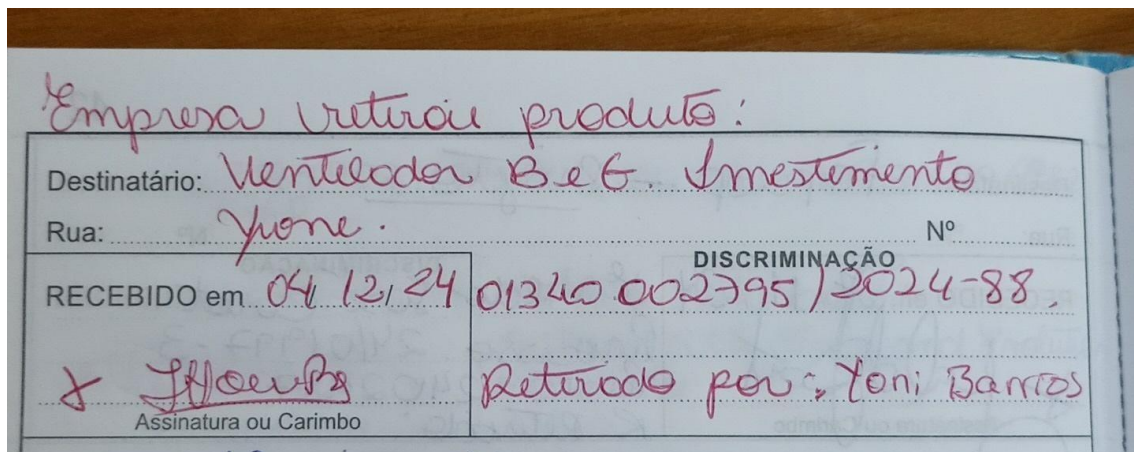 Empresa retirou produto:
Destinatário: Ventilador B e G. Investimento
Rua: Yvone. Nº
DISCRIMINAÇÃO
RECEBIDO em 04/12/24 01340.002795/2024-88.
x
Retirado por: Yoni Barros
Assinatura ou Carimbo